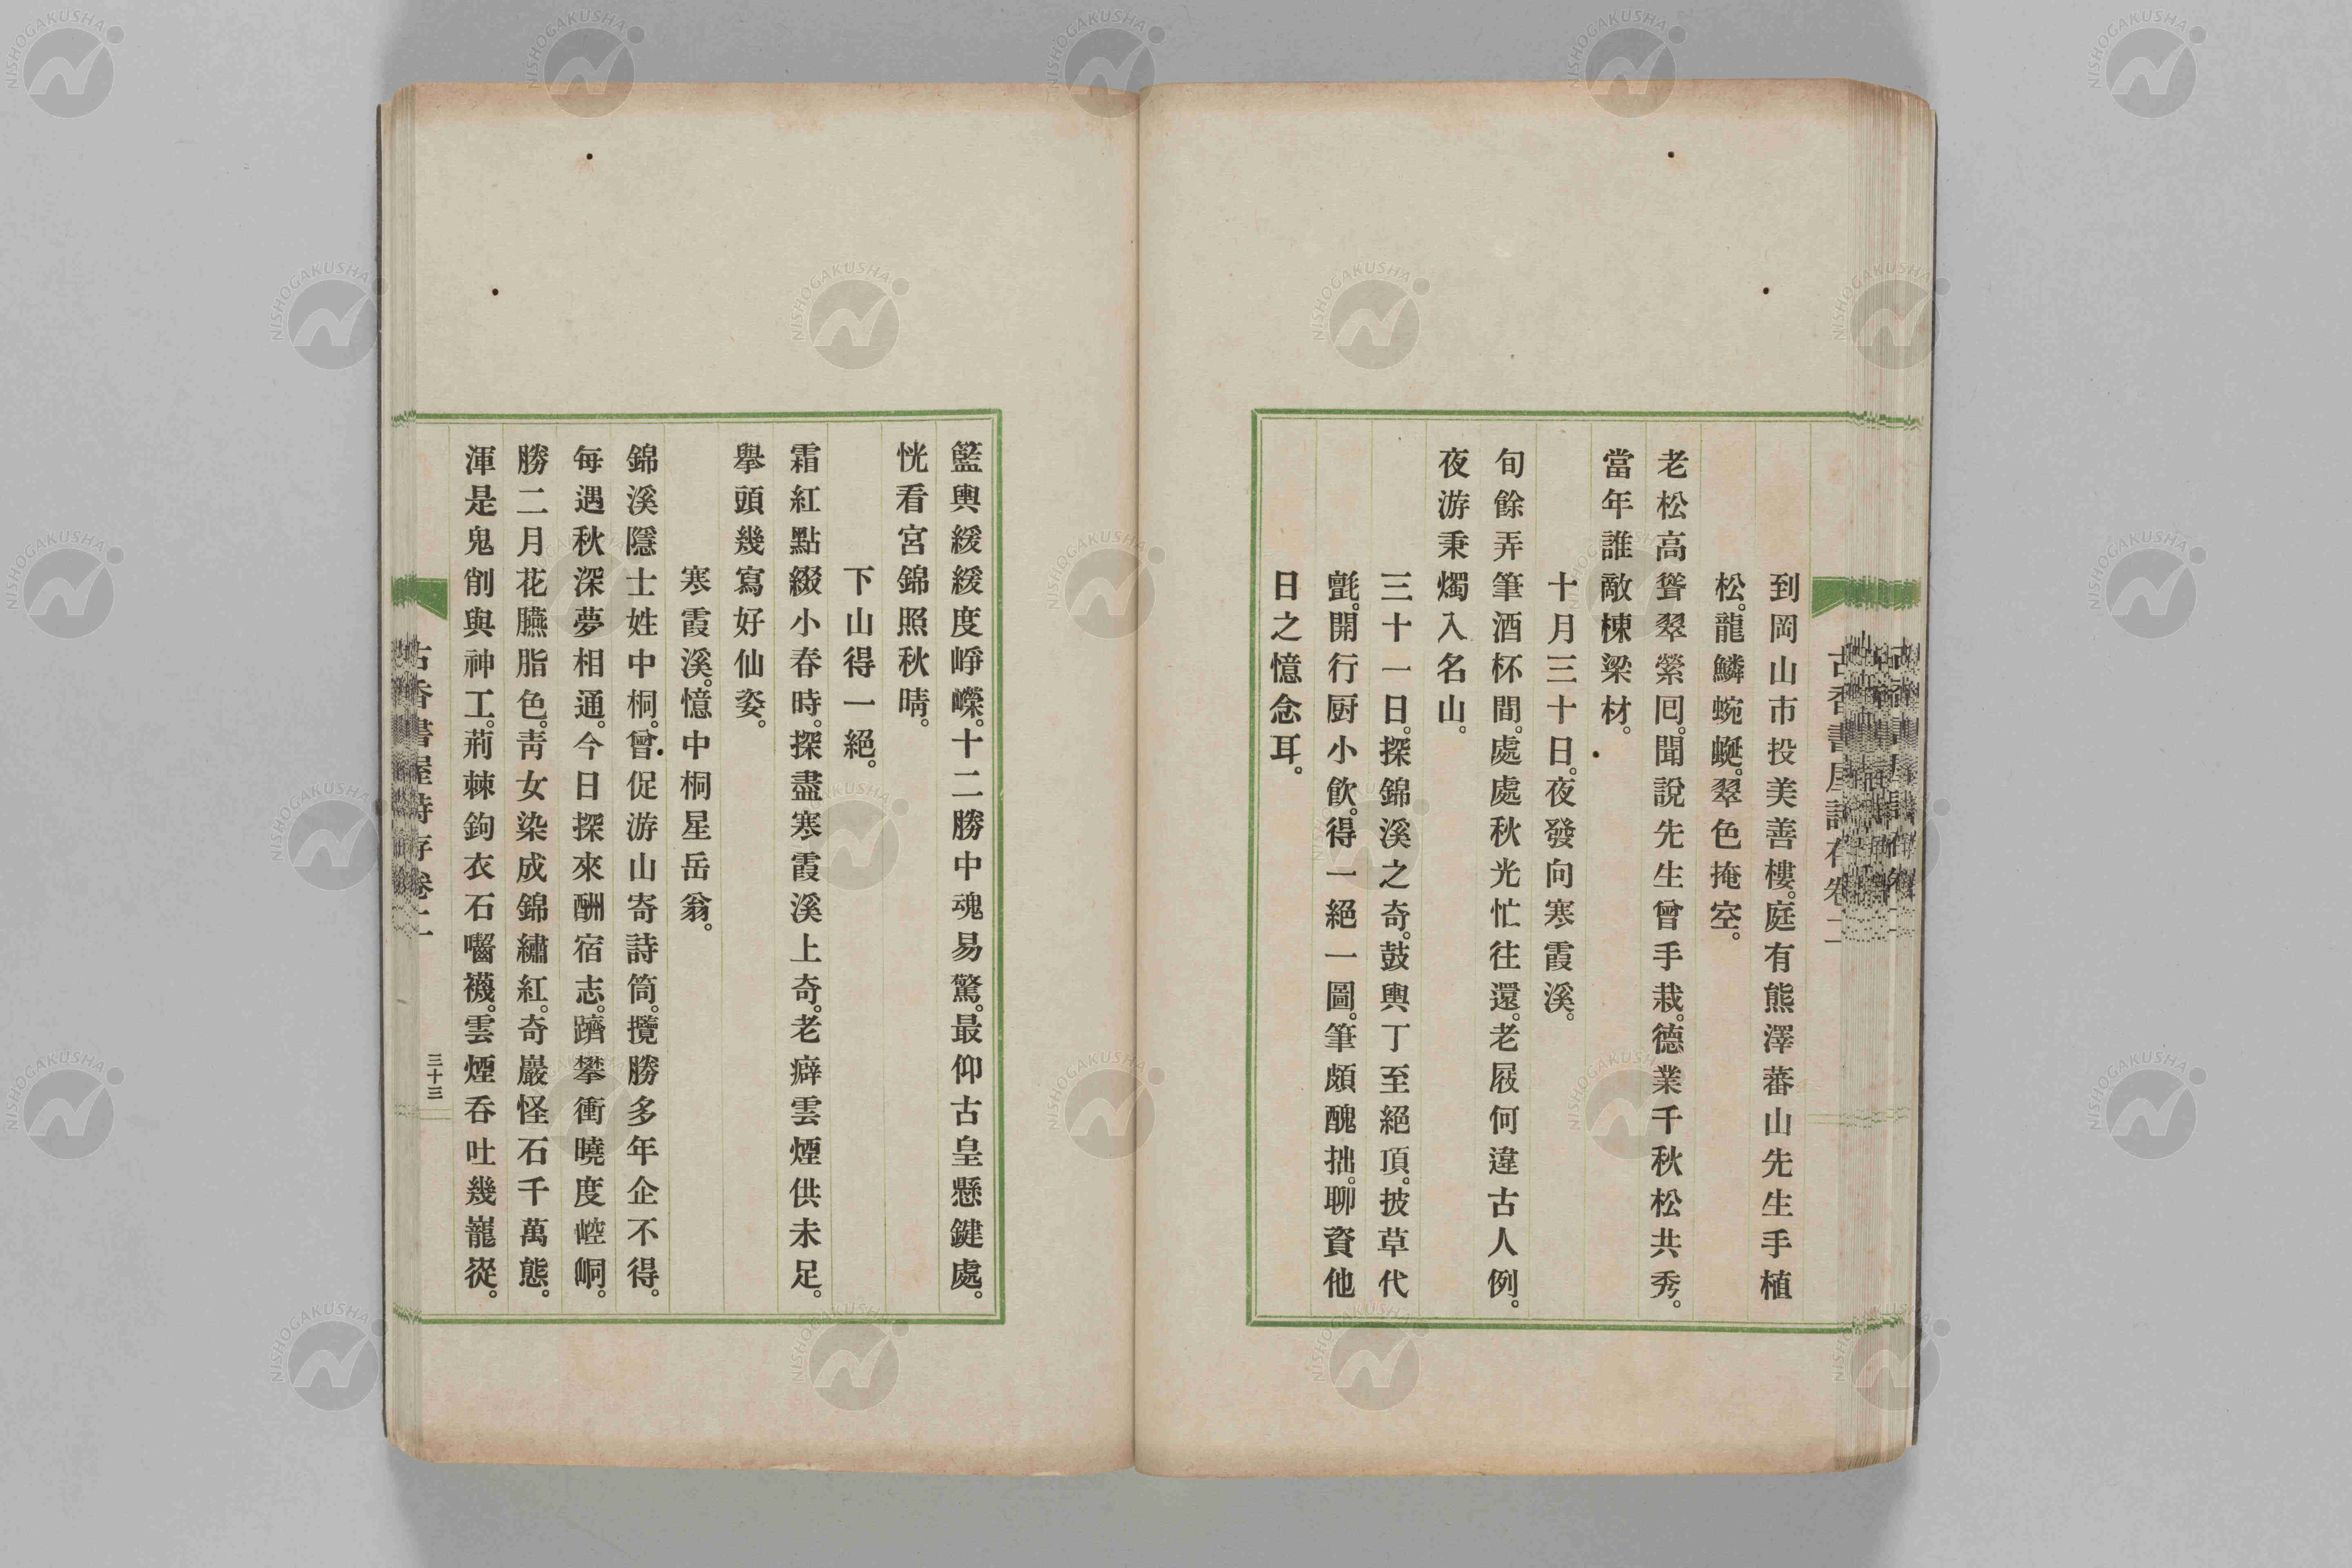 到岡山市投美善樓。庭有熊澤蕃山先生手植
松。龍鱗蜿蜒。翠色掩空。
老松高聳翠縈囘。聞說先生曾手栽。德業千秋松共秀。
當年誰敵棟梁材。
十月三十日。夜發向寒霞溪。
旬餘弄筆酒杯間。處處秋光忙往還。老屐何違古人例。
夜游秉燭入名山。
三十一日。探錦溪之奇。鼓輿丁至絕頂。披草代
氈。開行厨小飮。得一絕一圖。筆頗醜拙。聊資他
日之憶念耳。
籃輿緩緩度崢嶸。十二勝中魂易驚。最仰古皇懸鍵處。
恍看宮錦照秋晴。
下山得一絕。
霜紅點綴小春時。探盡寒霞溪上奇。老癖雲煙供未足。
擧頭幾寫好仙姿。
寒霞溪。憶中桐星岳翁。
錦溪隱士姓中桐。曾促游山寄詩筒。攬勝多年企不得。
每遇秋深夢相通。今日探來酬宿志。躋攀衝曉度崆峒。
勝二月花臙脂色。靑女染成錦繡紅。奇巖怪石千萬態。
渾是鬼削與神工。荊棘鉤衣石嚙襪。雲煙呑吐幾巃嵸。
古香書屋詩存卷二
三十三
古香書屋詩存卷二
NISHOGAKUSHA